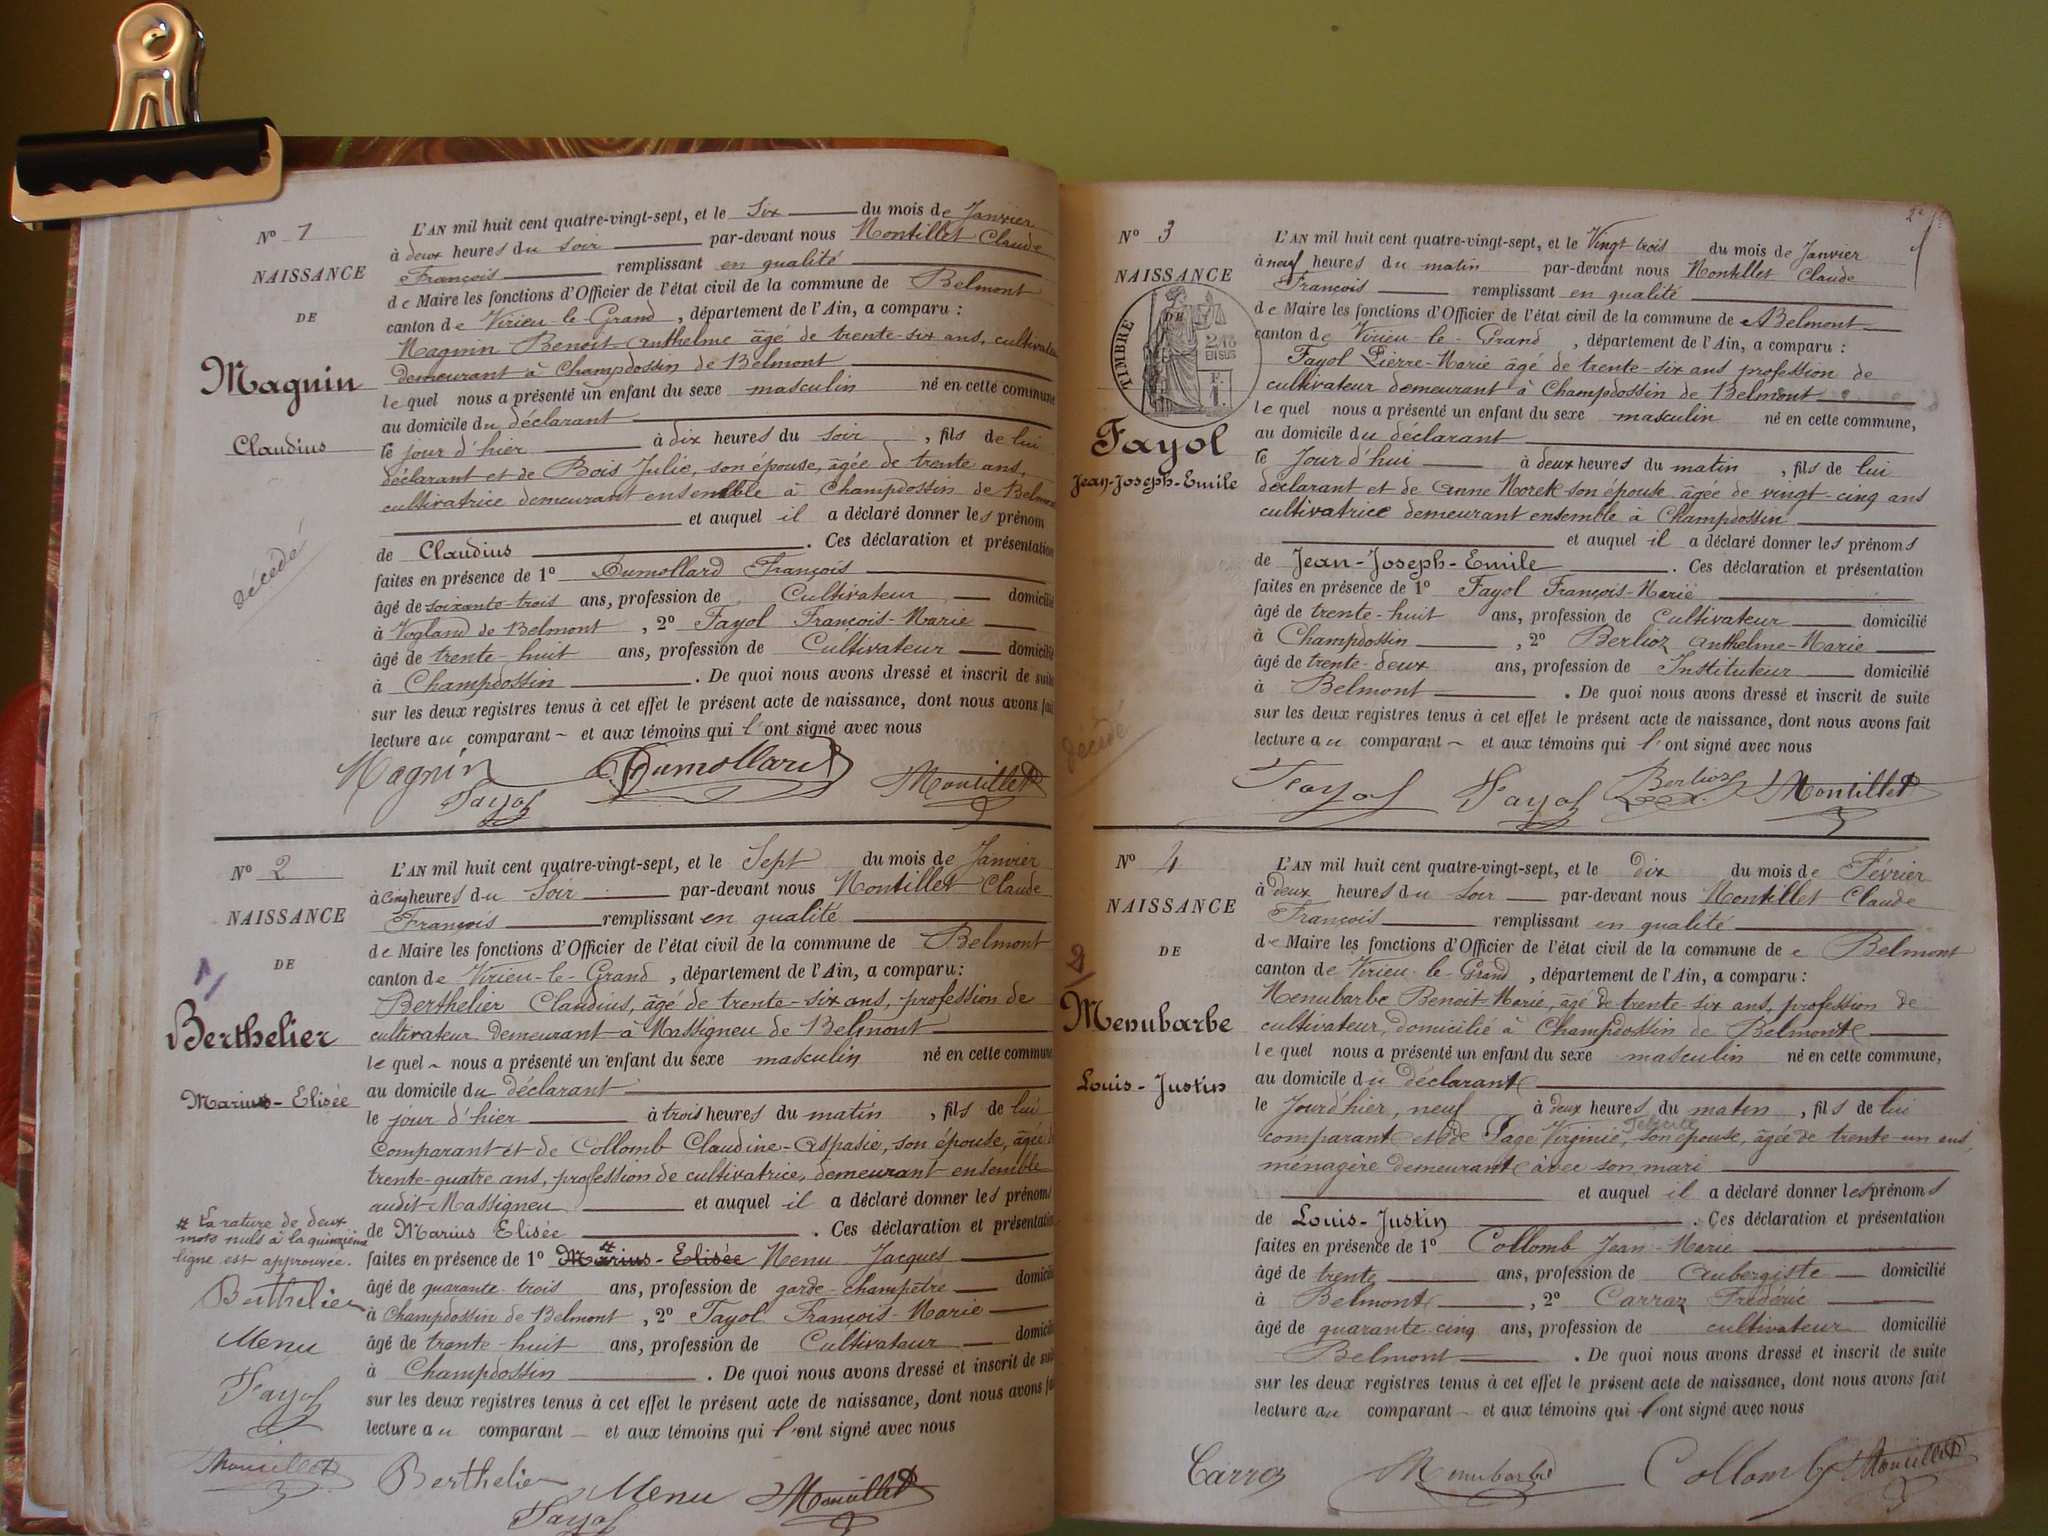 N° 1
NAISSANCE
DE
Magnin
Claudius
décédé
L'AN mil huit cent quatre-vingt-sept, et le Six du mois de Janvier
à deux heures du soir par-devant nous Montillet Claude
François remplissant en qualité
de Maire les fonctions d'Officier de l'état civil de la commune de Belmont
canton de Virieu-le-Grand, département de l'Ain, a comparu :
Magnin Benoit-Anthelme âgé de trente-six ans, cultivateur
demeurant à Champdossin de Belmont
lequel nous a présenté un enfant du sexe masculin né en cette commune
au domicile du déclarant
le jour d'hier à dix heures du soir, fils de lui
déclarant et de Bois Julie, son épouse, âgée de trente ans,
cultivatrice demeurant ensemble à Champdossin de Belmont
et auquel il a déclaré donner les prénom
de Claudius. Ces déclaration et présentation
faites en présence de 1° Dumollard François
âgé de soixante-trois ans, profession de Cultivateur domicilié
à Vogland de Belmont, 2° Fayol François-Marie
âgé de trente-huit ans, profession de Cultivateur domicilié
à Champdossin. De quoi nous avons dressé et inscrit de suite
sur les deux registres tenus à cet effet le présent acte de naissance, dont nous avons fait
lecture au comparant et aux témoins qui l'ont signé avec nous
Magnin Dumollard Montillet
Fayol
N° 2
NAISSANCE
DE
1
Berthelier
Marius-Elisée
# La rature de deux
mots nuls à la quinzième
ligne est approuvée.
Berthelier
Menu
Fayol
Montillet
L'AN mil huit cent quatre-vingt-sept, et le Sept du mois de Janvier
à cinq heures du Soir par-devant nous Montillet Claude
François remplissant en qualité
de Maire les fonctions d'Officier de l'état civil de la commune de Belmont
canton de Virieu-le-Grand, département de l'Ain, a comparu :
Berthelier Claudius, âgé de trente-six ans, profession de
cultivateur demeurant à Massigneu de Belmont
lequel nous a présenté un enfant du sexe masculin né en cette commune
au domicile du déclarant
le jour d'hier à trois heures du matin, fils de lui
comparant et de Collomb Claudine-Aspasie, son épouse, âgée de
trente-quatre ans, profession de cultivatrice, demeurant ensemble
audit Massigneu et auquel il a déclaré donner les prénoms
de Marius Elisée. Ces déclaration et présentation
faites en présence de 1° # Marius-Elisée Menu Jacques
âgé de quarante trois ans, profession de garde-champêtre domicilié
à Champdossin de Belmont, 2° Fayol François-Marie
âgé de trente-huit ans, profession de Cultivateur domicilié
à Champdossin. De quoi nous avons dressé et inscrit de suite
sur les deux registres tenus à cet effet le présent acte de naissance, dont nous avons fait
lecture au comparant et aux témoins qui l'ont signé avec nous
Berthelier Menu Montillet
Fayol
N° 3
NAISSANCE
DE
TIMBRE
2/10
EN SUS
Fayol
Jean-Joseph-Emile
décédé
L'AN mil huit cent quatre-vingt-sept, et le Vingt trois du mois de Janvier
à neuf heures du matin par-devant nous Montillet Claude
François remplissant en qualité
de Maire les fonctions d'Officier de l'état civil de la commune de Belmont
canton de Virieu-le-Grand, département de l'Ain, a comparu :
Fayol Pierre-Marie âgé de trente-six ans profession de
cultivateur demeurant à Champdossin de Belmont
lequel nous a présenté un enfant du sexe masculin né en cette commune,
au domicile du déclarant
le Jour d'hui à deux heures du matin, fils de lui
déclarant et de Anne Morek son épouse âgée de vingt-cinq ans
cultivatrice demeurant ensemble à Champdossin
et auquel il a déclaré donner les prénoms
de Jean-Joseph-Emile. Ces déclaration et présentation
faites en présence de 1° Fayol François-Marie
âgé de trente-huit ans, profession de cultivateur domicilié
à Champdossin, 2° Berlioz Anthelme-Marie
âgé de trente-deux ans, profession de Instituteur domicilié
à Belmont. De quoi nous avons dressé et inscrit de suite
sur les deux registres tenus à cet effet le présent acte de naissance, dont nous avons fait
lecture au comparant et aux témoins qui l'ont signé avec nous
Fayol Fayol Berlioz Montillet
N° 4
NAISSANCE
DE
2
Menubarbe
Louis-Justin
L'AN mil huit cent quatre-vingt-sept, et le dix du mois de Février
à deux heures du soir par-devant nous Montillet Claude
François remplissant en qualité
de Maire les fonctions d'Officier de l'état civil de la commune de Belmont
canton de Virieu-le-Grand, département de l'Ain, a comparu :
Menubarbe Benoit-Marie, âgé de trente-six ans, profession de
cultivateur, domicilié à Champdossin de Belmont
lequel nous a présenté un enfant du sexe masculin né en cette commune,
au domicile du déclarant
le Jour d'hier, neuf à deux heures du matin, fils de lui
comparant et de Page Virginie, son épouse, âgée de trente-un ans,
ménagère demeurant avec son mari
et auquel il a déclaré donner les prénoms
de Louis-Justin. Ces déclaration et présentation
faites en présence de 1° Collomb Jean-Marie
âgé de trente ans, profession de aubergiste domicilié
à Belmont, 2° Carraz Frédéric
âgé de quarante cinq ans, profession de cultivateur domicilié
Belmont. De quoi nous avons dressé et inscrit de suite
sur les deux registres tenus à cet effet le présent acte de naissance, dont nous avons fait
lecture au comparant et aux témoins qui l'ont signé avec nous
Carraz Menubarbe Collomb Montillet